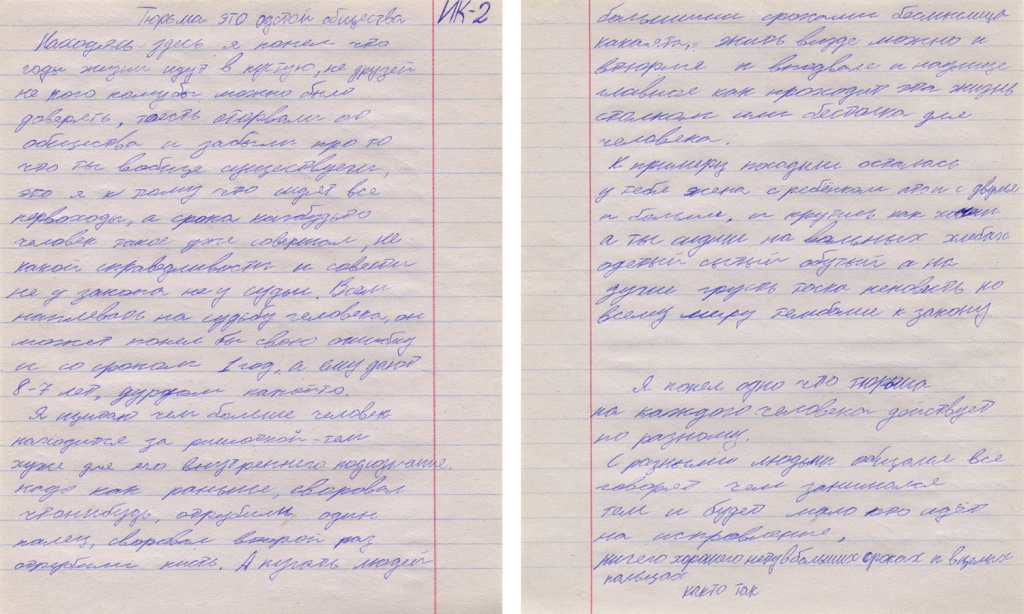 Тюрьма это отстой общества
ИК-2
Находясь здесь я понел что
годы жизни идут в пустую, не друзей
не кого кому бы можно было
доверять, тоесть оторвали от
общества и забыли про то
что ты вообще существуеш,
это я к тому что идёт все
первоходы, а срока какбудьто
человек такое уже совершал, не
какой справедливости и совести
не у закона не у судьи. Всем
наплевать на судьбу человека, он
может понел бы свою ошибку
и со сроком 1 год, а ему дают
8-7 лет, дурдом какойто.
Я щитаю чем больше человек
находится за ришоткой - тем
хуже для его внутреннего подсознание.
надо как раньше, своровал
чтонибудь, отрубили один
палец, своровал второй раз
отрубили кисть. А пугать людей
большими сроками бесмыслица
какаято, жить везде можно и
втюрме и вподвале и наулице
главное как проходит эта жизнь
столком или бестолка для
человека.
К примеру посадили осталась
у тебя жена с ребёнком ато и с двумя
и больше, и крутись как
а ты сидиш на вольных хлебах
одетый сытый обутый а на
душе грусть тоска неновисть ко
всему миру темболие к закону
Я понел одно что тюрьма
на каждого человека действует
по разному.
С разными людьми общался все
говорят чем занимался
тем и будет мало кто идёт
на исправление,
ничего хорошего нету в больших сроках и в
пальцах
както так